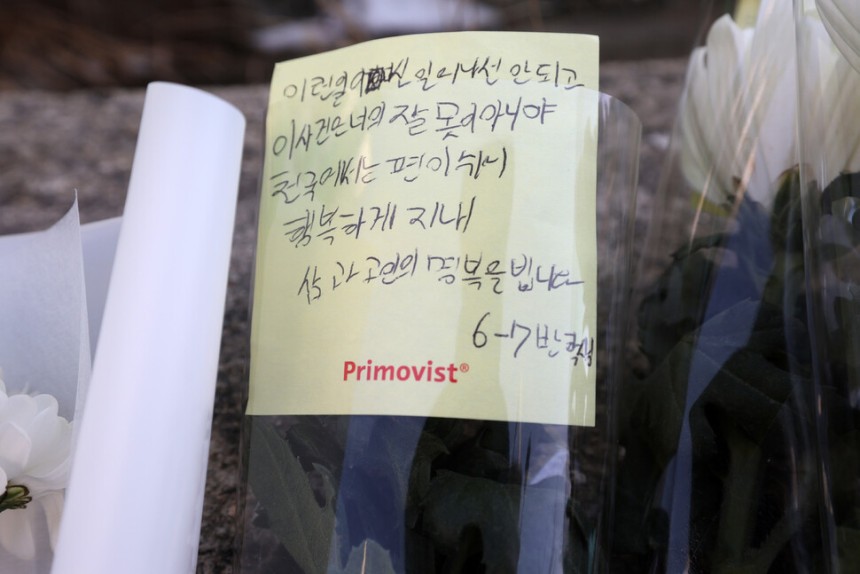 이런일이 신 일어나선 안되고
이사건은너의 잘 못이아니야
천국에서는 편이쉬니
행복하게 지내
삭 고 고인의 명복을빕니다
6-17반 학생
Primovist®